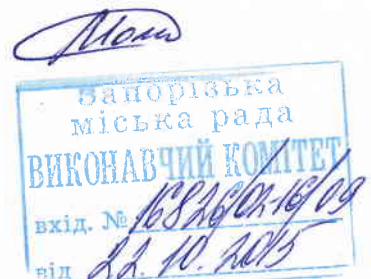 Запорізька
міська рада
ВИКОНАВЧИЙ КОМІТЕТ
вхід. № 16826/02-16/09
від 22.10.2015